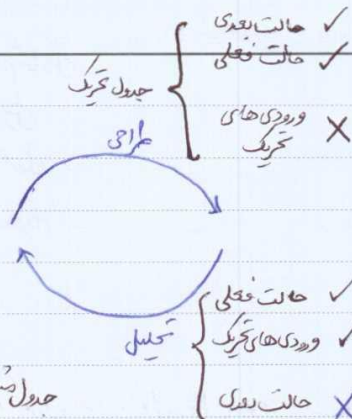 حالت بعدی ✓
حالت فعلی ✓
جدول تحریک
ورودی های ✗
تحریک
طراحی
حالت فعلی ✓
ورودی های تحریک ✓
تحلیل
حالت بعدی ✗
جدول